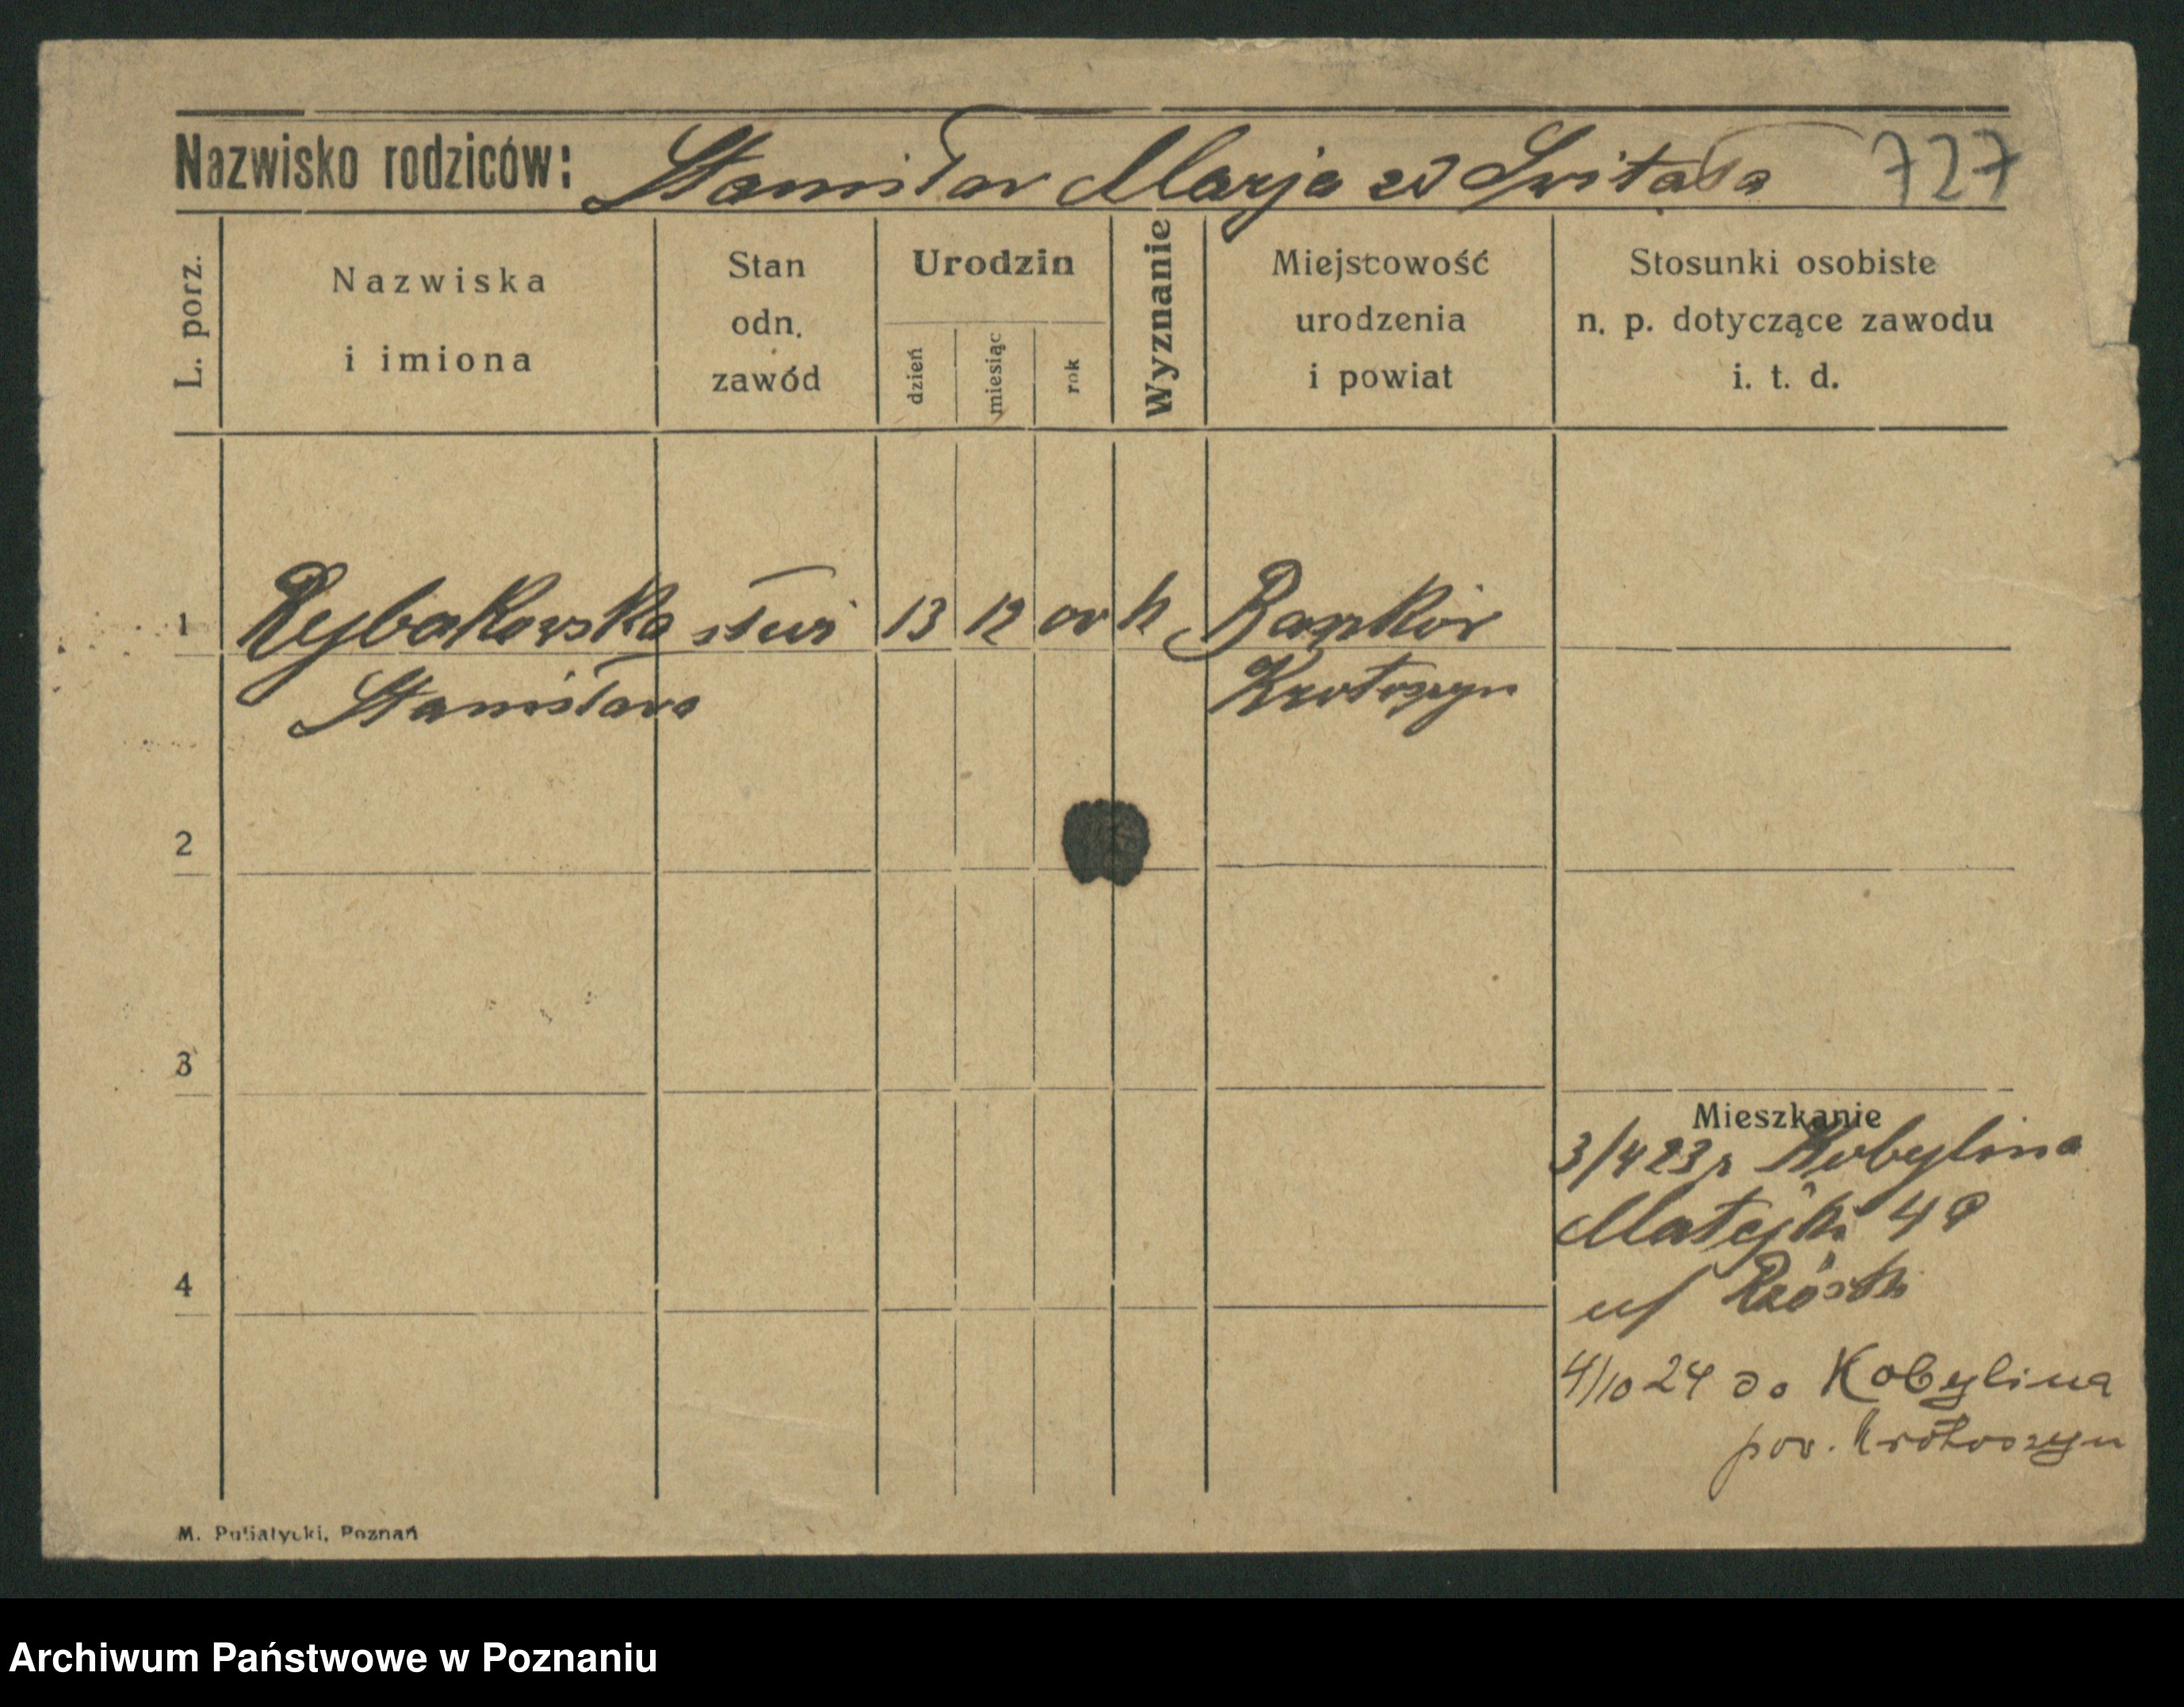 Nazwisko rodziców: Stanisław Marja zd Switała 727
L. porz.
Nazwiska
i imiona
Stan
odn.
zawód
Urodzin
dzień
miesiąc
rok
Wyznanie
Miejscowość
urodzenia
i powiat
Stosunki osobiste
n. p. dotyczące zawodu
i. t. d.
1 Rybakowska służ 13 12 00 k
Stanisława Krotoszyn
2
3
4
Mieszkanie
3/4 23 z Kobylina
Matejki 49
u/
4/10 24 do Kobylina
pow. Krotoszyn
M. Putiatycki, Poznań
Archiwum Państwowe w Poznaniu